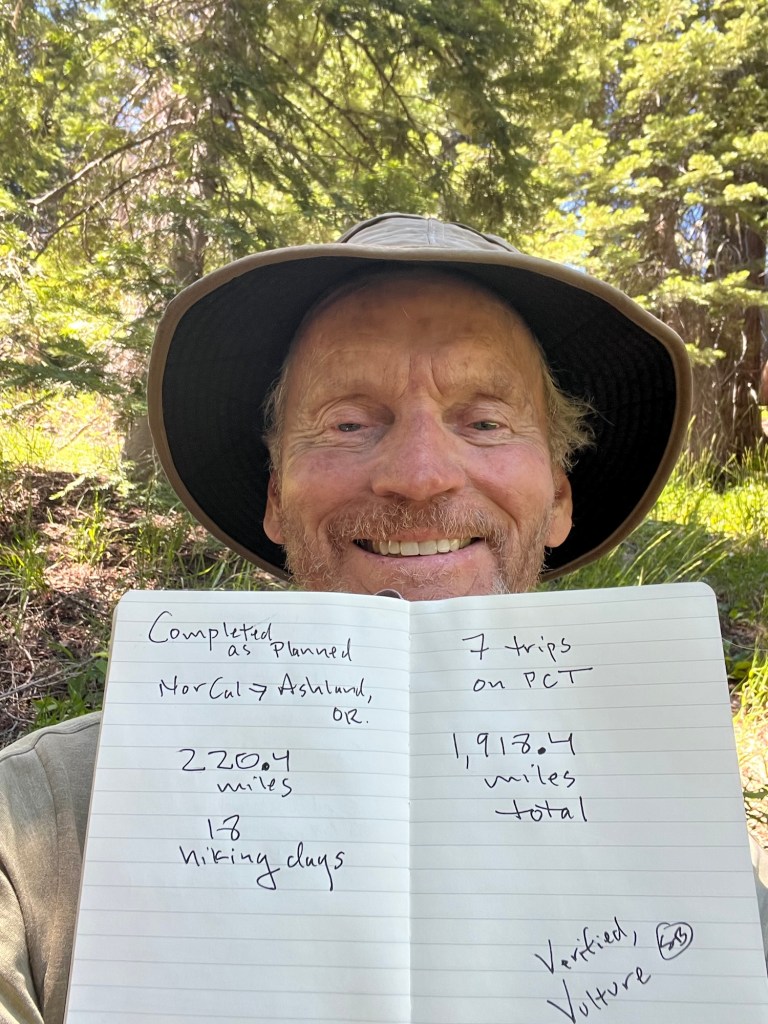 Completed
as Planned
NorCal → Ashland,
OR.
220.4
miles
18
hiking days
7 trips
on PCT
1,918.4
miles
total
Verified, SB
Vulture